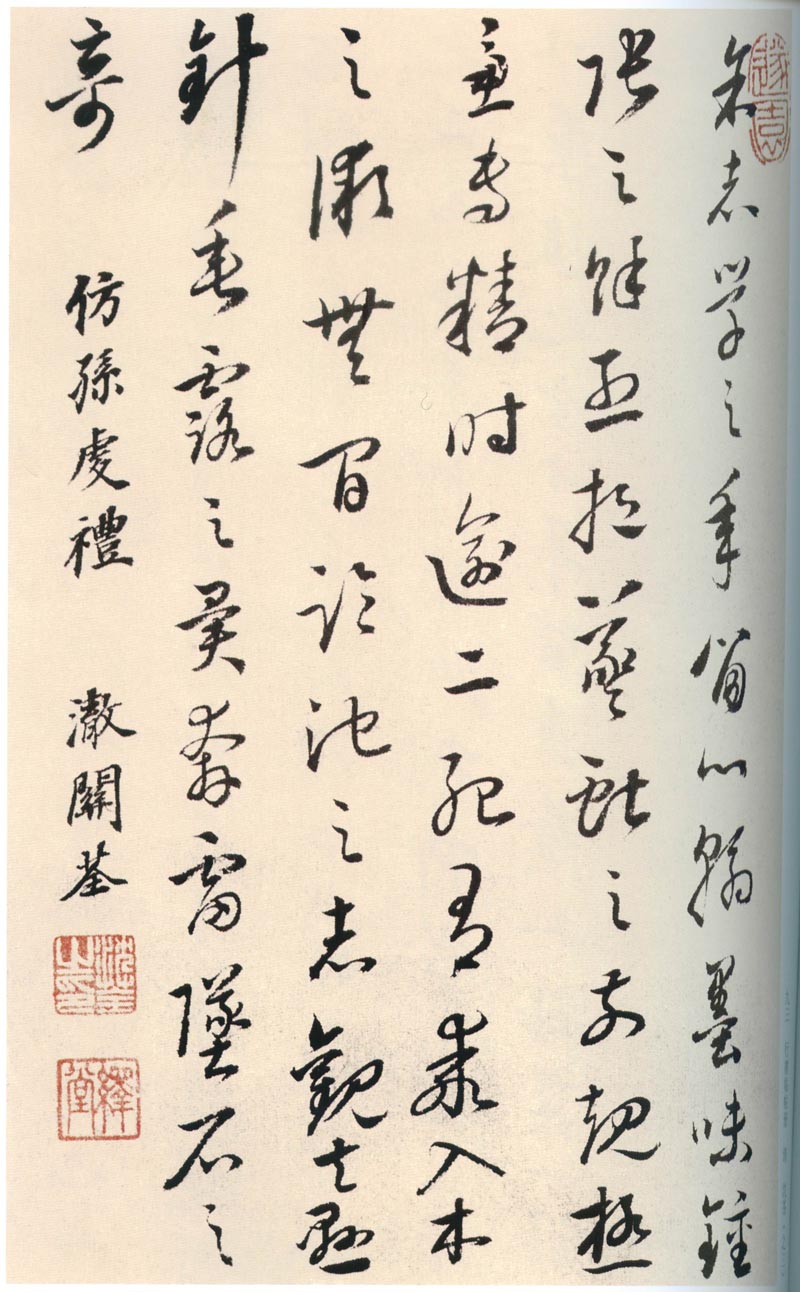 余志學之年留心翰墨味鍾
張之餘烈挹羲獻之前規極
慮專精時逾二紀有乖入木
之術無間臨池之志觀夫懸
針垂露之異奔雷墜石之
奇 仿孫虔禮 澂關荃